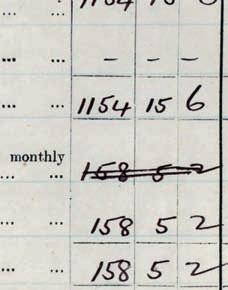 ... ...
... ... - - -
... ... 1154 15 6
monthly
... ... 158 5 2
... ... 158 5 2
... ... 158 5 2